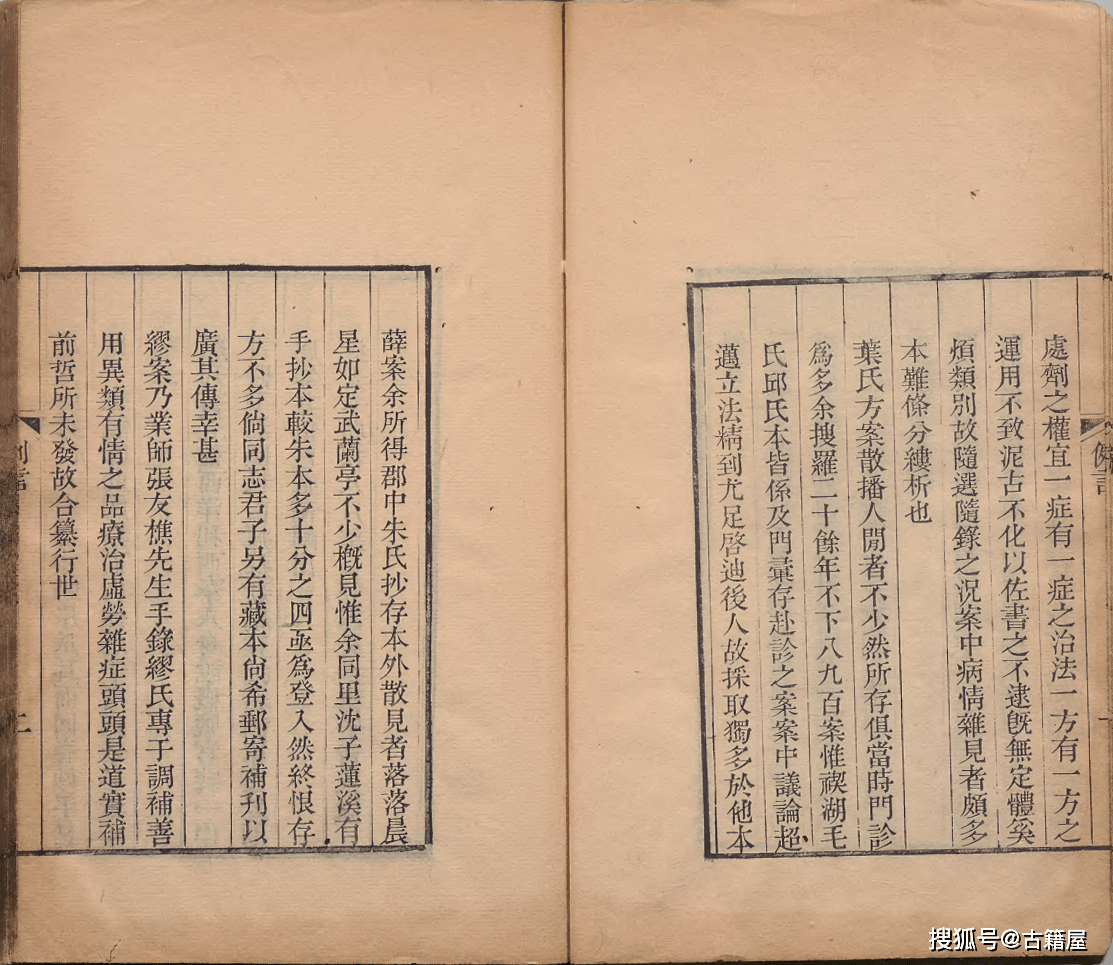 處劑之權宜一症有一症之治法一方有一方之
運用不致泥古不化以佐書之不逮旣無定體奚
煩類別故隨選隨錄之況案中病情雜見者頗多
本難條分縷析也
葉氏方案散播人閒者不少然所存俱當時門診
爲多余搜羅二十餘年不下八九百案惟禊湖毛
氏邱氏本皆係及門彙存赴診之案案中議論超
邁立法精到尤足啓迪後人故採取獨多於他本
薛案余所得郡中朱氏抄存本外散見者落落晨
星如定武蘭亭不少槪見惟余同里沈子蓮溪有
手抄本較朱本多十分之四亟爲登入然終恨存
方不多倘同志君子另有藏本尙希郵寄補刊以
廣其傳幸甚
繆案乃業師張友樵先生手錄繆氏專于調補善
用異類有情之品療治虛勞雜症頭頭是道實補
前哲所未發故合纂行世
二
搜狐号@古籍屋